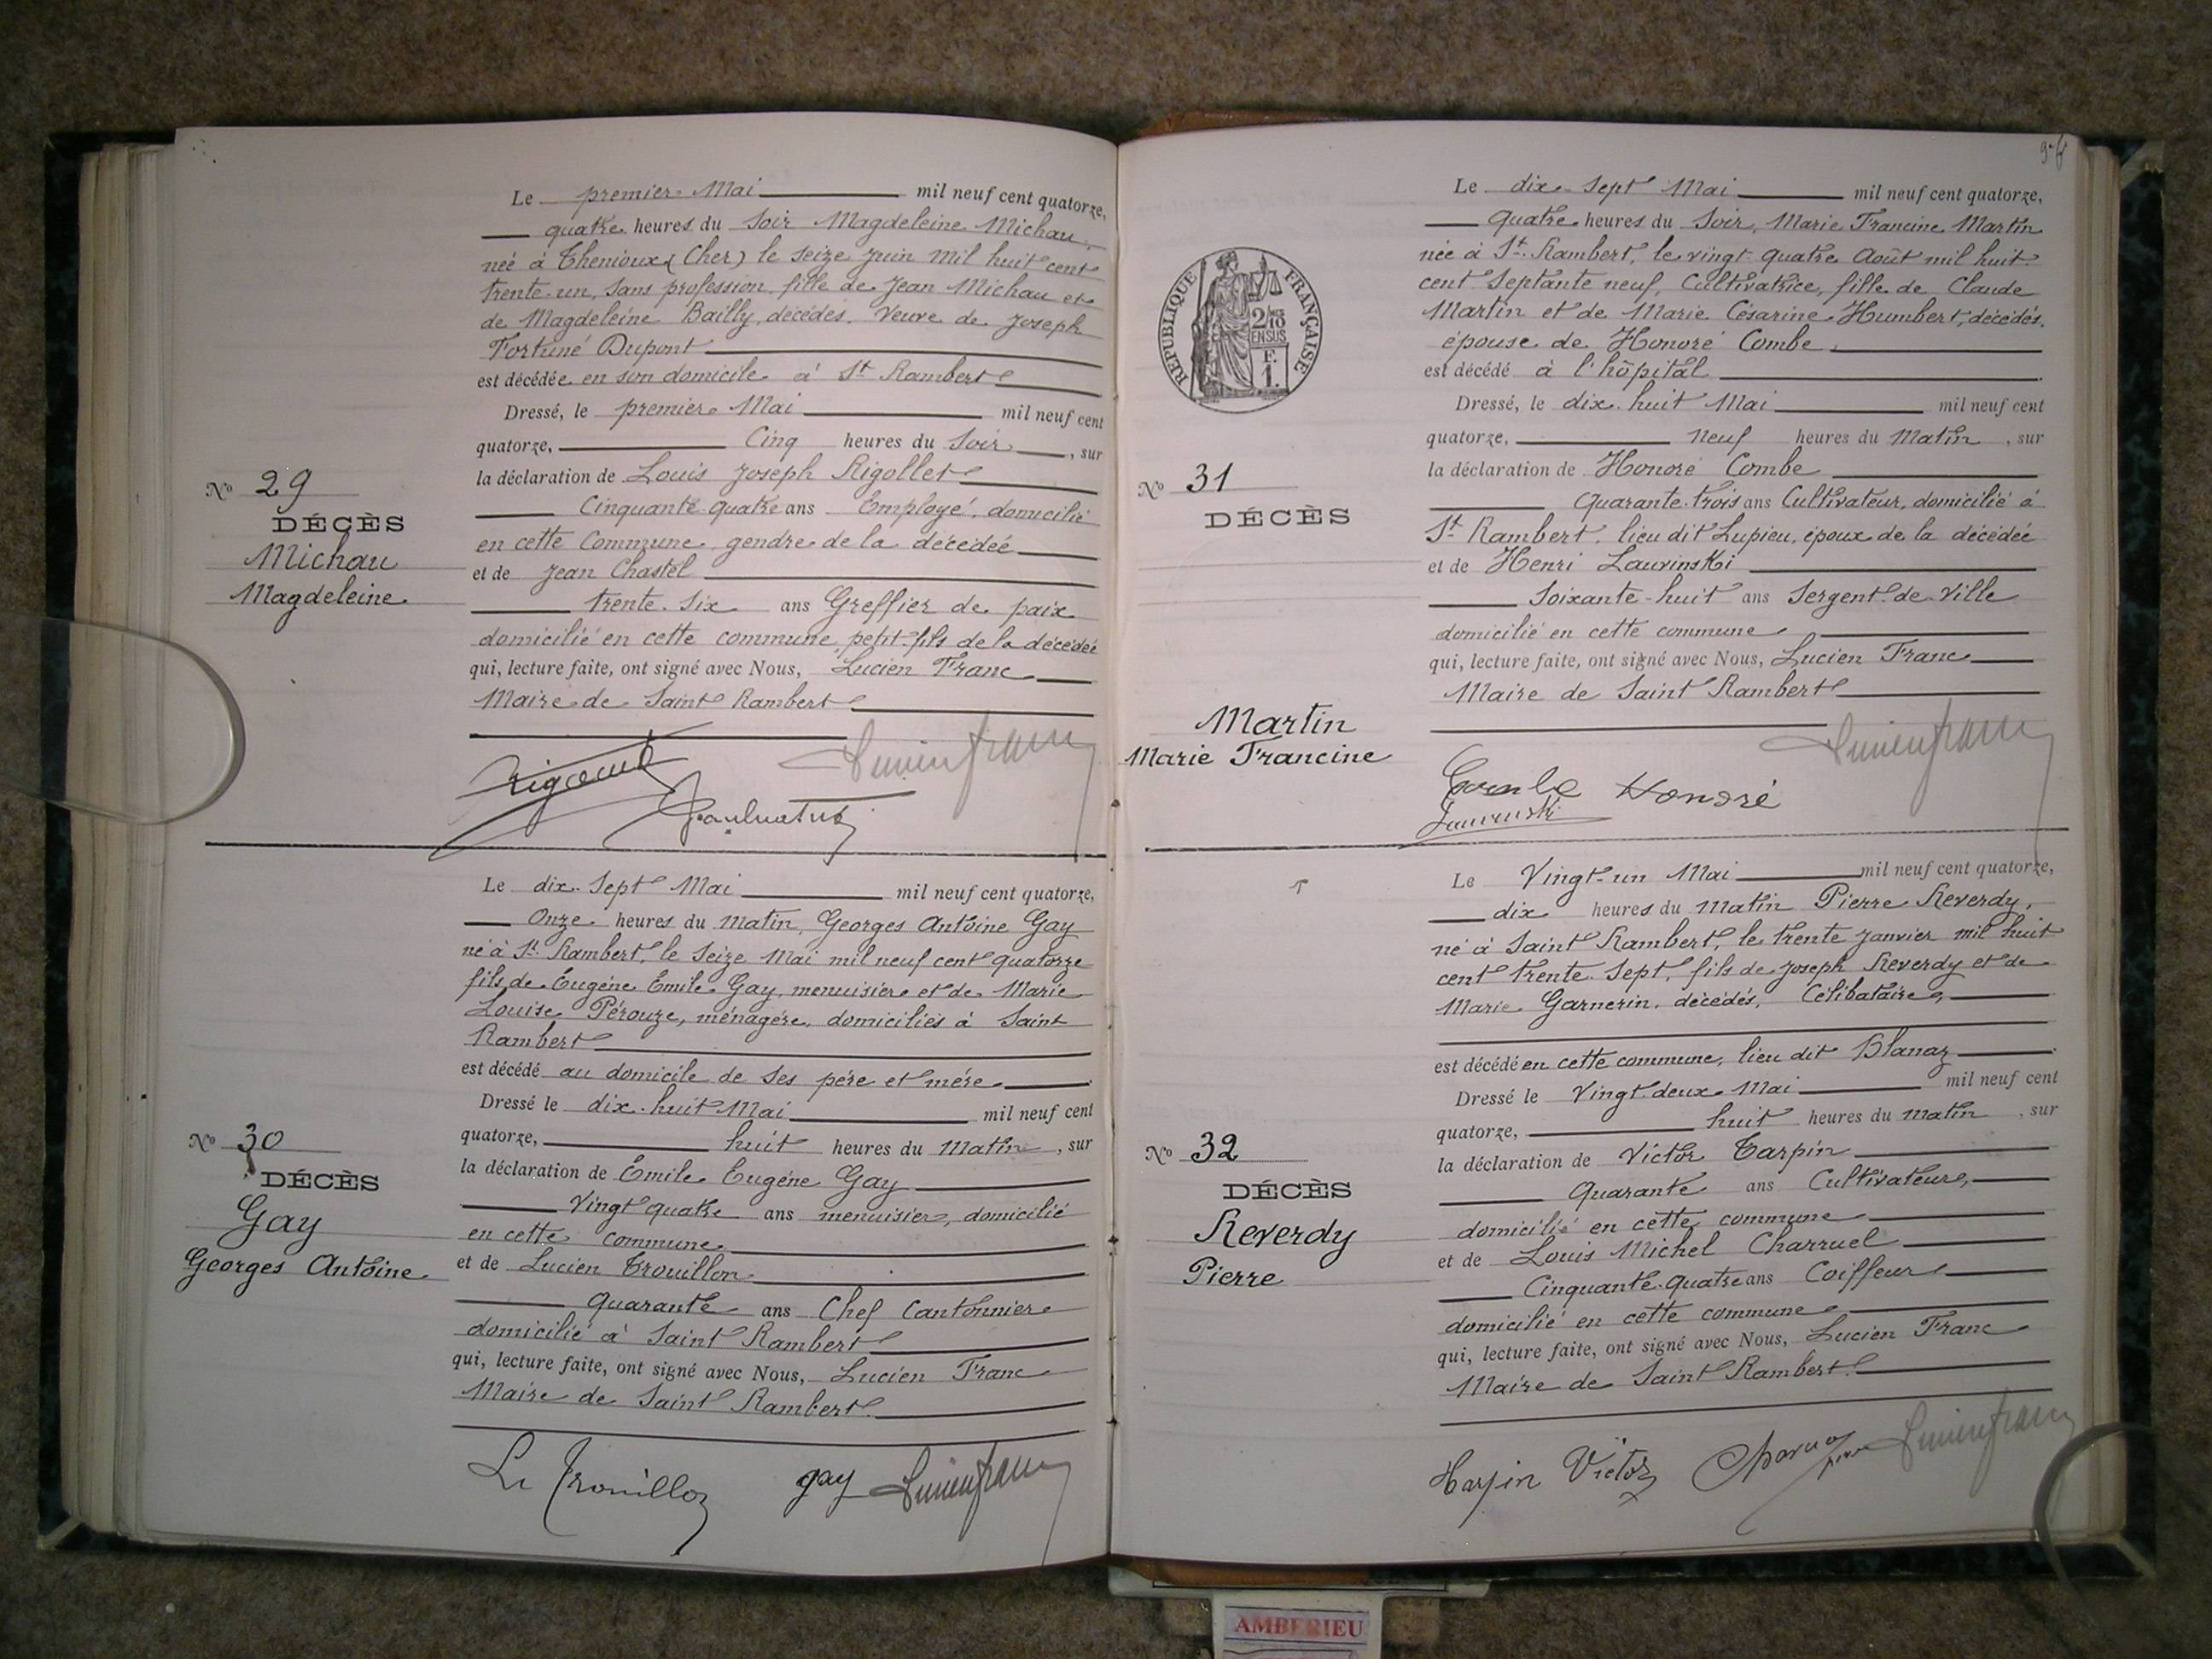 Le premier Mai mil neuf cent quatorze,
quatre heures du Soir Magdeleine Michau,
née à Thenioux (Cher) le seize Juin mil huit cent
trente-un, sans profession, fille de Jean Michau et
de Magdeleine Bailly, décédés. Veuve de Joseph
Fortuné Dupont
est décédée en son domicile à St Rambert
Dressé, le premier Mai mil neuf cent
quatorze, Cinq heures du Soir, sur
la déclaration de Louis Joseph Rigollet
Cinquante-quatre ans Employé, domicilié
en cette Commune, gendre de la décédée
et de Jean Chastel
trente-six ans Greffier de paix
domicilié en cette commune, petit-fils de la décédée
qui, lecture faite, ont signé avec Nous, Lucien Franc
Maire de Saint Rambert
No 29
DÉCÈS
Michau
Magdeleine
Lucien franc
Le dix-sept Mai mil neuf cent quatorze,
Onze heures du Matin, Georges Antoine Gay
né à St Rambert, le Seize Mai mil neuf cent quatorze
fils de Eugène Emile Gay, menuisier et de Marie
Louise Pérouze, ménagère, domiciliés à Saint
Rambert
est décédé au domicile de ses père et mère
Dressé le dix-huit Mai mil neuf cent
quatorze, huit heures du Matin, sur
la déclaration de Émile Eugène Gay
Vingt quatre ans menuisier, domicilié
en cette commune
et de Lucien Trouillon
quarante ans Chef Cantonnier
domicilié à Saint Rambert
qui, lecture faite, ont signé avec Nous, Lucien Franc
Maire de Saint Rambert.
No 30
DÉCÈS
Gay
Georges Antoine
Trouillon gay Lucien franc
Le dix-sept Mai mil neuf cent quatorze,
quatre heures du Soir, Marie Francine Martin
née à St Rambert, le vingt-quatre Août mil huit
cent septante neuf, Cultivatrice, fille de Claude
Martin et de Marie Césarine Humbert, décédés.
épouse de Honoré Combe
est décédé à l'hôpital
Dressé, le dix-huit Mai mil neuf cent
quatorze, neuf heures du Matin, sur
la déclaration de Honoré Combe
quarante-trois ans Cultivateur, domicilié à
St Rambert, lieu dit Lupieu, époux de la décédée
et de Henri Lauvinski
Soixante-huit ans Sergent de Ville
domicilié en cette commune
qui, lecture faite, ont signé avec Nous, Lucien Franc
Maire de Saint Rambert
RÉPUBLIQUE FRANÇAISE
2/10
EN SUS
F.
1.
No 31
DÉCÈS
Martin
Marie Francine
Lucien franc
Combe Honoré
Le Vingt-un Mai mil neuf cent quatorze,
dix heures du Matin Pierre Reverdy,
né à Saint Rambert, le trente janvier mil huit
cent trente-sept, fils de Joseph Reverdy et de
Marie Garnerin, décédés, Célibataire,
est décédé en cette commune, lieu dit Blanaz
Dressé le Vingt-deux Mai mil neuf cent
quatorze, huit heures du matin, sur
la déclaration de Victor Tarpin
Quarante ans Cultivateur,
domicilié en cette commune
et de Louis Michel Charruel
Cinquante-quatre ans Coiffeur
domicilié en cette commune
qui, lecture faite, ont signé avec Nous, Lucien Franc
Maire de Saint Rambert.
No 32
DÉCÈS
Reverdy
Pierre
Victor Lucien franc
AMBERIEU